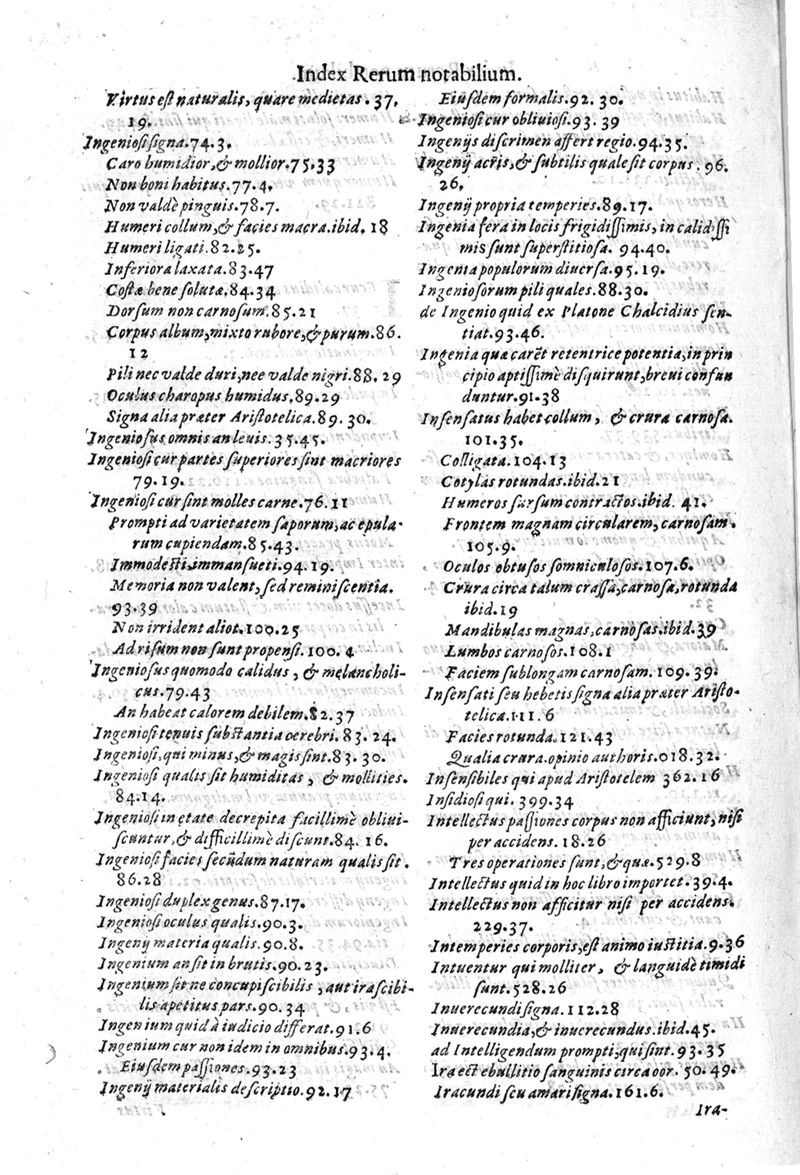 Index Rerum notabilium.
Virtus est naturalis, quare medietas. 37.
19.
Ingeniosi signa.74.3.
Caro humidior, & mollior.75.33
Non boni habitus.77.4.
Non valdè pinguis.78.7.
Humeri collum, & facies macra.ibid. 18
Humeri ligati.82.25.
Inferiora laxata.83.47
Costæ bene solutæ,84.34
Dorsum non carnosum.85.21
Corpus album, mixto rubore, & purum.86.
12
Pili nec valde duri, nee valde nigri.88.29
Oculus charopus humidus.89.29
Signa alia præter Aristotelica.89.30.
Ingeniosus omnis an leuis.35.45.
Ingeniosi cur partes superiores sint macriores
79.19.
Ingeniosi cur sint molles carne.76.11
Prompti ad varietatem saporum, ac epula-
rum cupiendam.85.43.
Immodesti immansueti.94.19.
Memoria non valent, sed reminiscentia.
93.39
Non irrident aliot.100.25
Ad risum non sunt propensi.100.4
Ingeniosus quomodo calidus, & melancholi-
cus.79.43
An habeat calorem debilem.82.37
Ingeniosi tenuis substantia cerebri.83.24.
Ingeniosi, qui minus, & magis sint.83.30.
Ingeniosi qualis sit humiditas, & mollities.
84.14.
Ingeniosi in ętate decrepita facillimè obliui-
scuntur, & difficillimè discunt.84.16.
Ingeniosi facies secūdum naturam qualis sit.
86.28
Ingeniosi duplex genus.87.17.
Ingeniosi oculus qualis.90.3.
Ingenij materia qualis.90.8.
Ingenium an sit in brutis.90.23.
Ingenium sit ne concupiscibilis, aut irascibi-
lis apetitus pars.90.34
Ingenium quid à iudicio differat.91.6
Ingenium cur non idem in omnibus.93.4.
Eiusdem passiones.93.23
Ingenij materialis descriptio.92.17
Eiusdem formalis.92.30.
Ingeniosi cur obliuiosi.93.39
Ingenijs discrimen affert regio.94.35.
Ingenij acris, & subtilis quale sit corpus. 96.
26.
Ingenij propria temperies.89.17.
Ingenia fera in locis frigidissimis, in calidissi
mis sunt superstitiosa. 94.40.
Ingenia populorum diuersa.95.19.
Ingeniosorum pili quales.88.30.
de Ingenio quid ex Platone Chalcidius sen-
tiat.93.46.
Ingenia quæ carēt retentrice potentia, in prin
cipio aptissimè disquirunt, breui confun
duntur.91.38
Insensatus habet collum, & crura carnosa.
101.35.
Colligata.104.13
Cotylas rotundas.ibid.21
Humeros sursum contractos.ibid. 41.
Frontem magnam circularem, carnosam.
105.9.
Oculos obtusos somniculosos.107.6.
Crura circa talum crassa, carnosa, rotunda
ibid.19
Mandibulas magnas, carnosas.ibid.39
Lumbos carnosos.108.1
Faciem sublongam carnosam. 109.39.
Insensati seu hebetis signa alia præter Aristo-
telica.111.6
Facies rotunda.121.43
Qualia crura.opinio authoris.018.32.
Insensibiles qui apud Aristotelem 362.16
Insidiosi qui. 399.34
Intellectus passiones corpus non afficiunt, nisi
per accidens. 18.26
Tres operationes sunt, & quæ.529.8
Intellectus quid in hoc libro importet.39.4.
Intellectus non afficitur nisi per accidens.
229.37.
Intemperies corporis, est animo iustitia.9.36
Intuentur qui molliter, & languidè timidi
sunt.528.26
Inuerecundi signa.112.28
Inuerecundia, & inuerecundus.ibid.45.
ad Intelligendum prompti, qui sint.93.35
Ira est ebullitio sanguinis circa cor. 50.49.
Iracundi seu amari signa.161.6.
Ira-